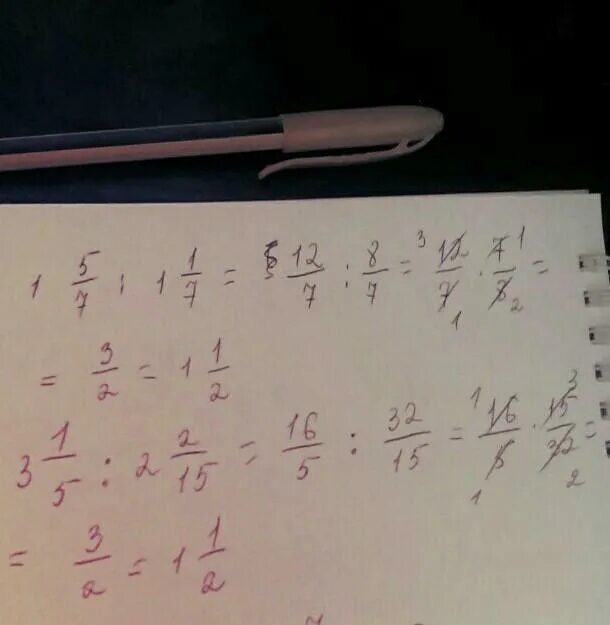 1 5/7 : 1 1/7 = 12/7 : 8/7 = 3 12/7 1 · 7 1/8 2 =
= 3/2 = 1 1/2
3 1/5 : 2 2/15 = 16/5 : 32/15 = 1 16/5 1 · 15 3/32 2 =
= 3/2 = 1 1/2